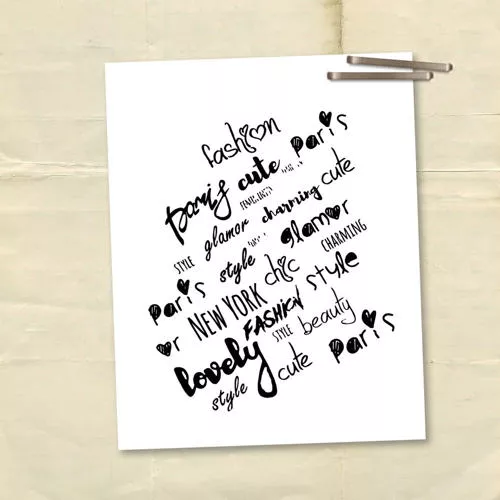 fashion
Paris
Paris cute
cute
glamor charming
STYLE
glamor
style
CHARMING
chic
style
Paris
NEW YORK
FASHION
or
STYLE beauty
Paris
lovely
cute
style